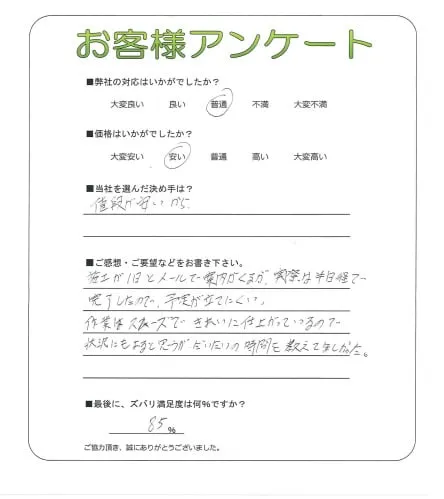 お客様アンケート
■弊社の対応はいかがでしたか？
大変良い 良い 普通 不満 大変不満
■価格はいかがでしたか？
大変安い 安い 普通 高い 大変高い
■当社を選んだ決め手は？
値段が安いから
■ご感想・ご要望などをお書き下さい。
施工が1日とメールで案内がくるが、実際は半日程で
完了したので、予定が立てにくい。
作業はスムーズで きれいに仕上がっているので
状況にもよると思うが だいたいの時間を教えてほしかった。
■最後に、ズバリ満足度は何%ですか？
85%
ご協力頂き、誠にありがとうございました。